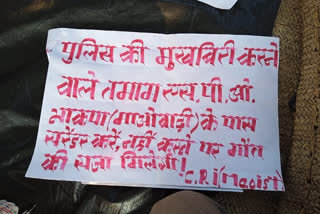 पुलिस की मुखबिरी करने
वाले तमाम एस.पी.ओ.
भाकपा (माओवादी) के पास
सरेंडर करें, नहीं करने पर मौत
की सजा मिलेगी!
-C.P.I (Maoist)